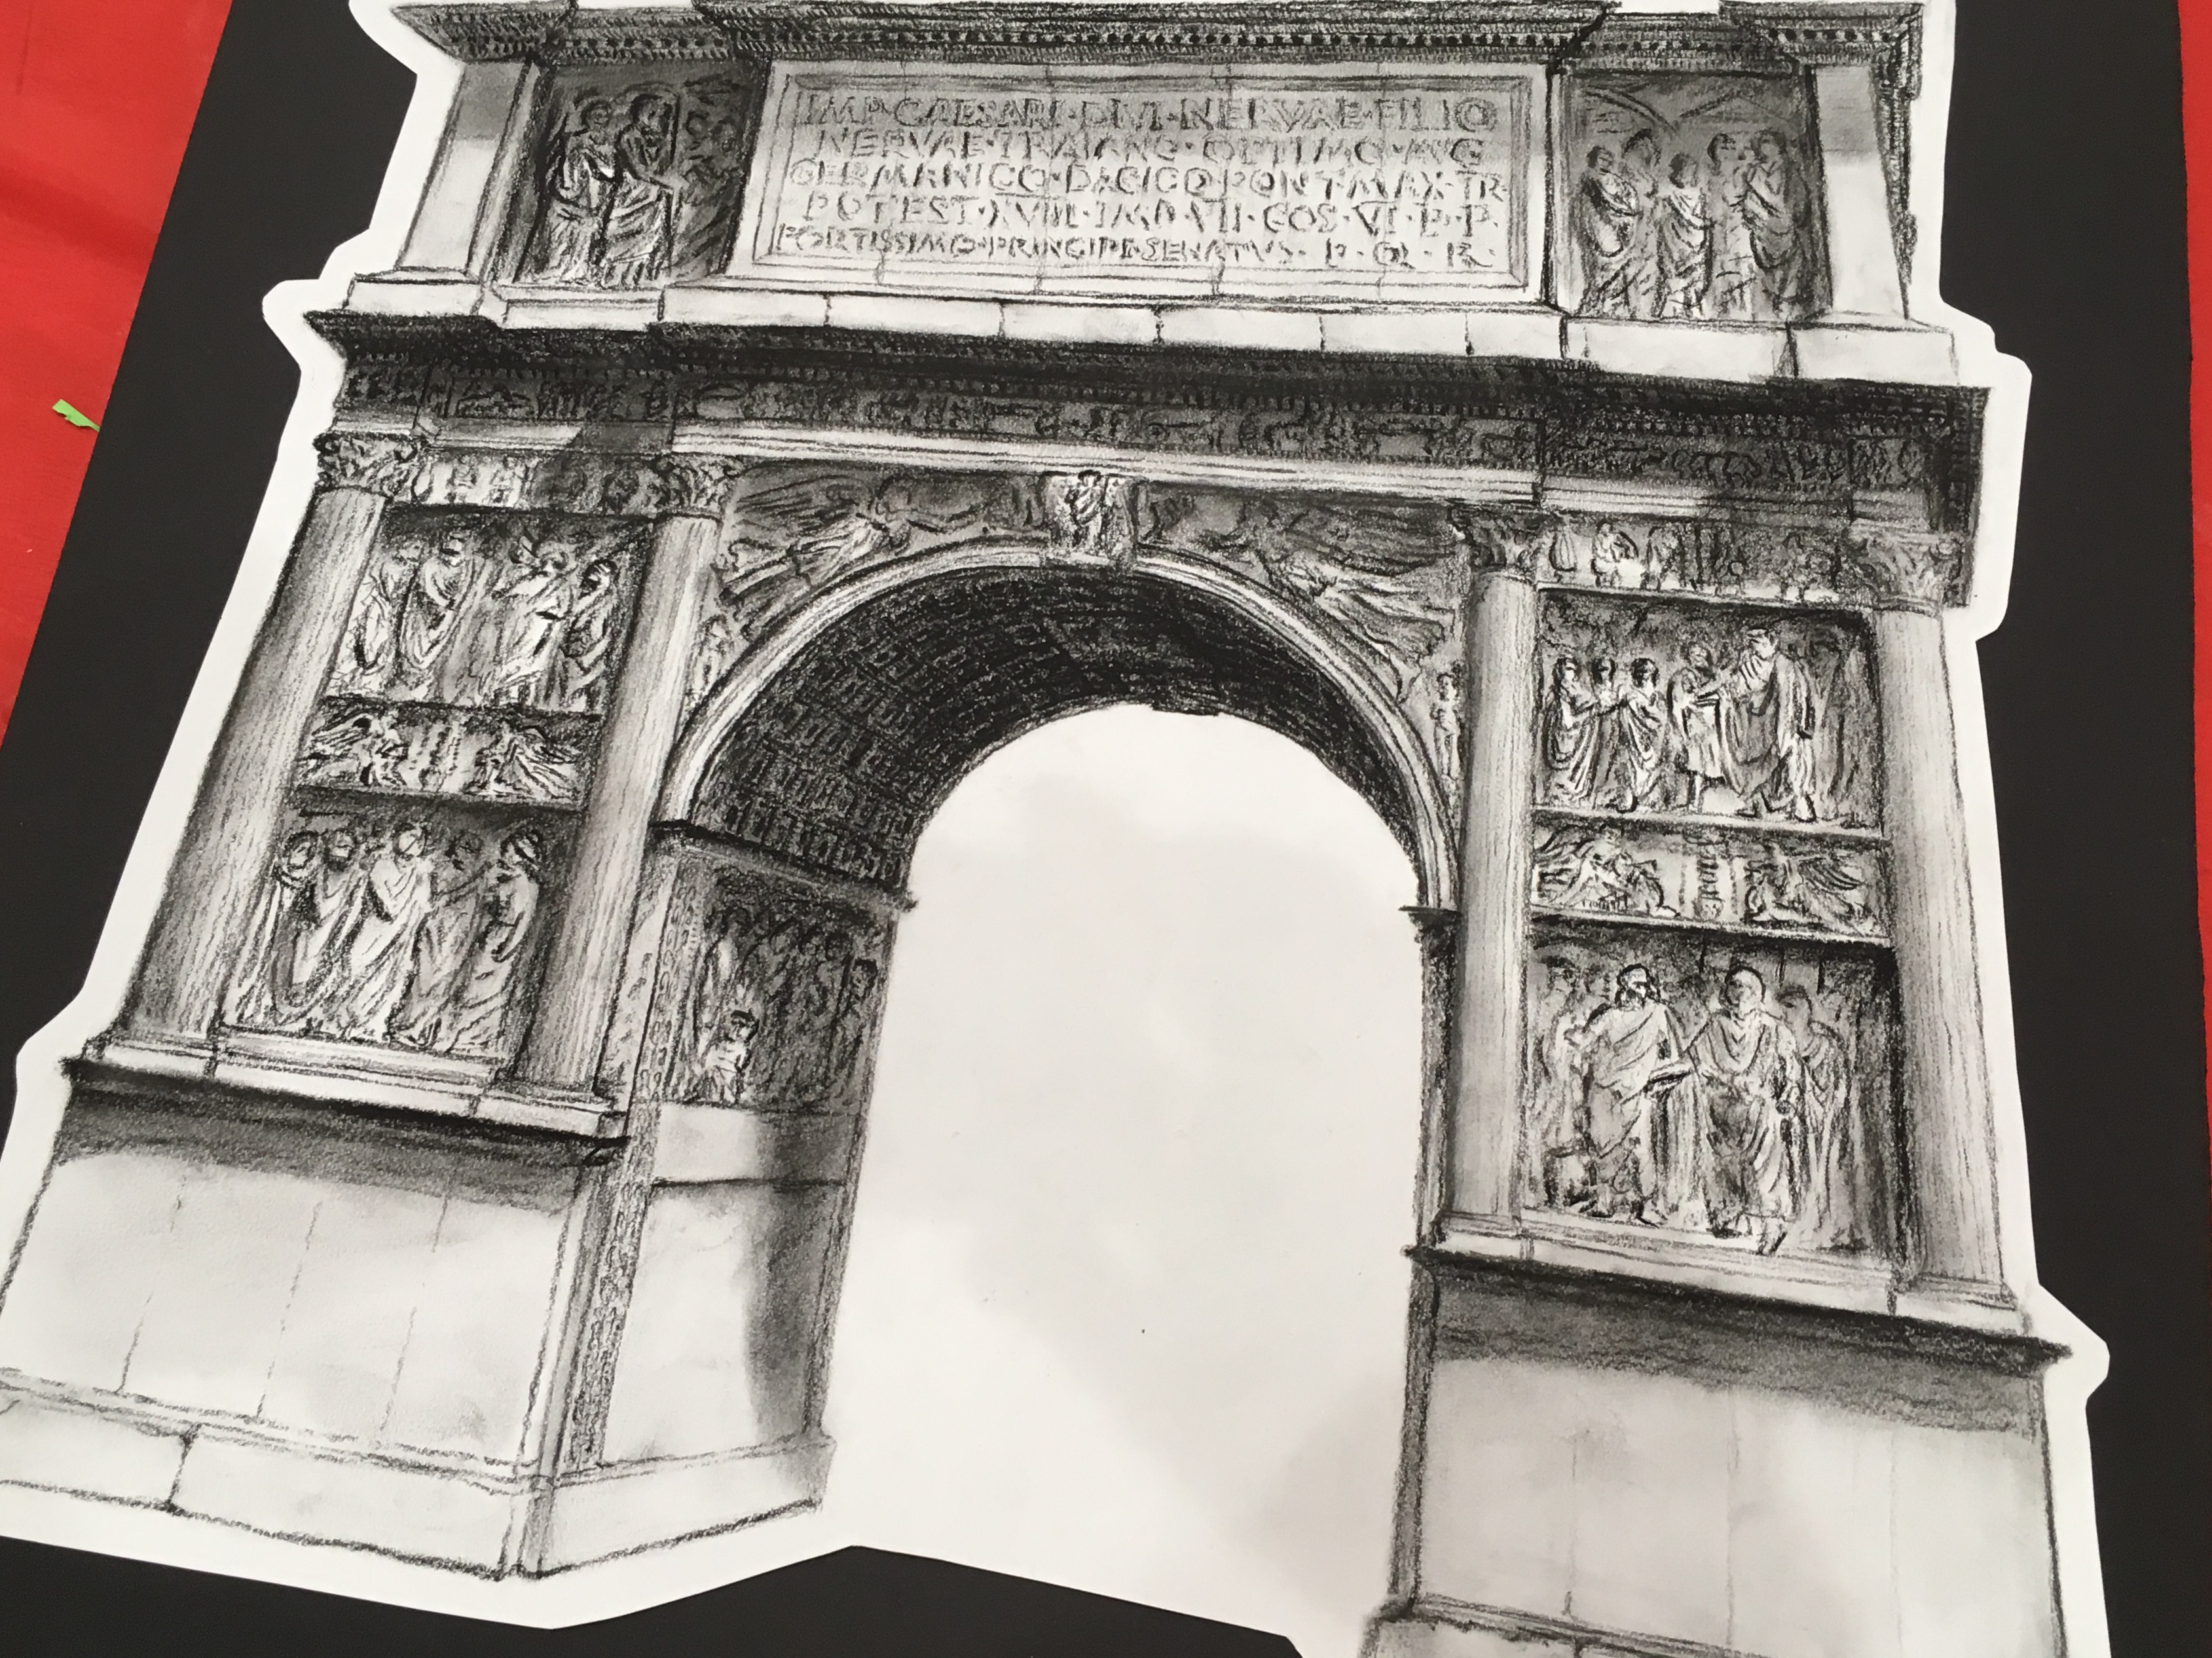 IMP·CAESARI·DIVI·NERVAE·FILIO
NERVAE·TRAIANO·OPTIMO·AVG
GERMANICO·DACICO·PONT·MAX·TR
POTEST·XVIII·IMP·VII·COS·VI·P·P·
FORTISSIMO·PRINCIPI·SENATVS·P·Q·R·